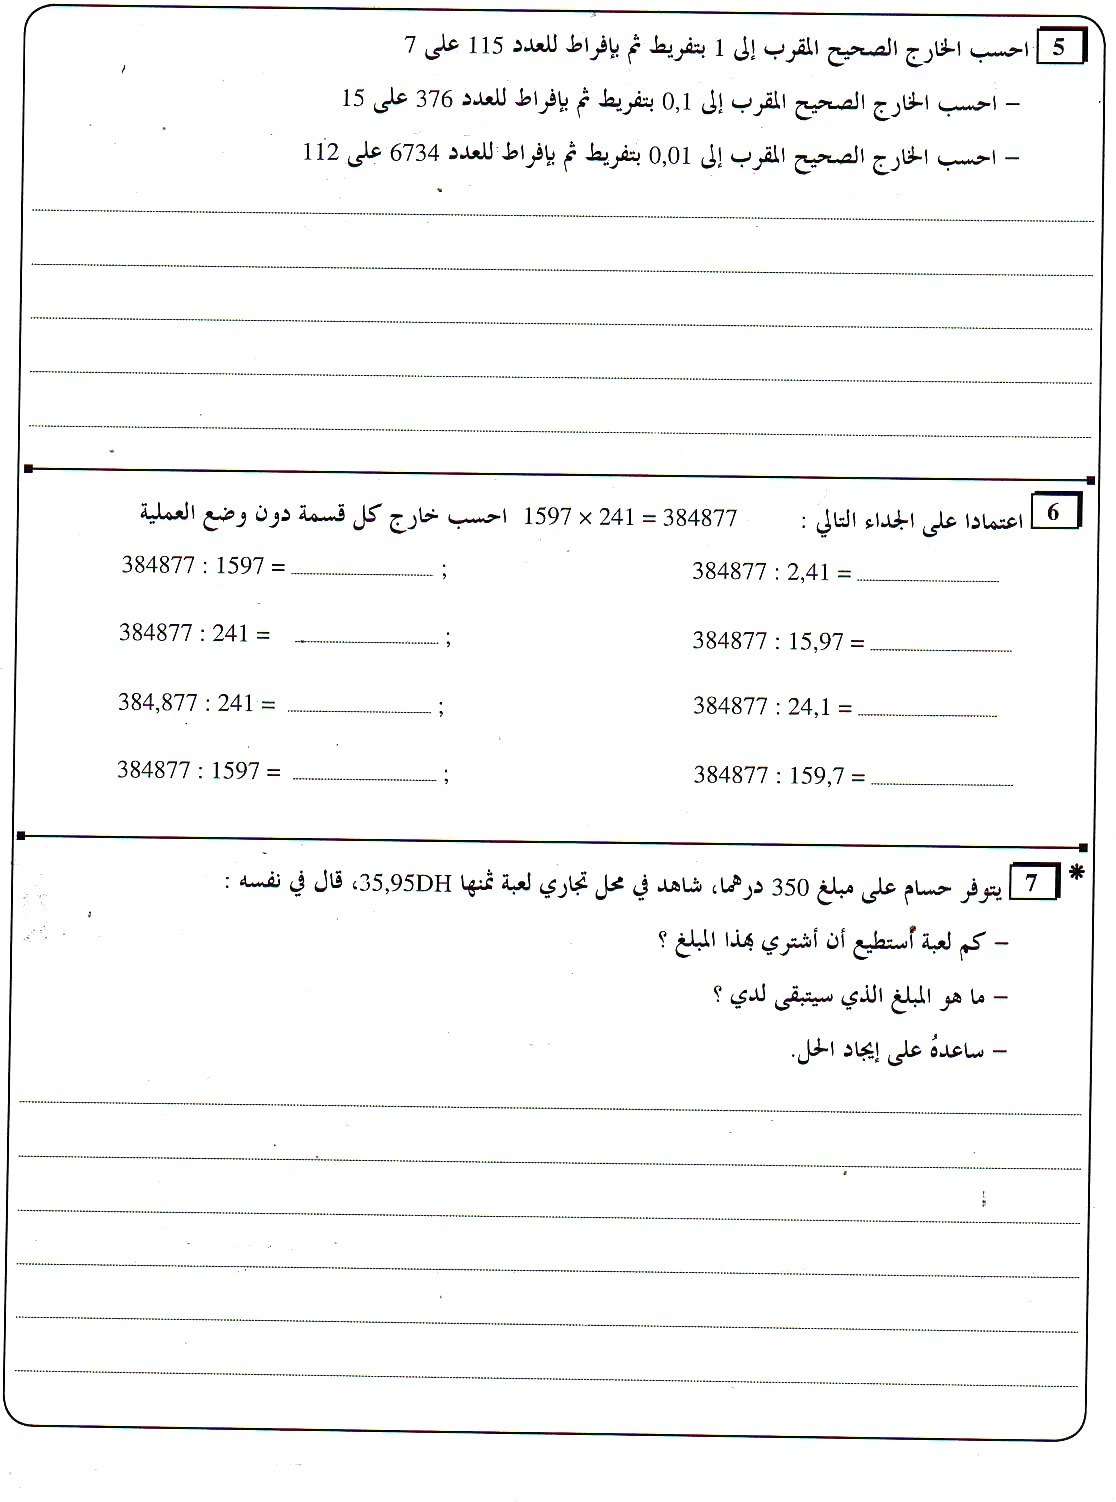 5 احسب الخارج الصحيح المقرب إلى 1 بتفريط ثم بإفراط للعدد 115 على 7
– احسب الخارج الصحيح المقرب إلى 0,1 بتفريط ثم بإفراط للعدد 376 على 15
– احسب الخارج الصحيح المقرب إلى 0,01 بتفريط ثم بإفراط للعدد 6734 على 112
6 اعتمادا على الجداء التالي : 1597 × 241 = 384877 احسب خارج كل قسمة دون وضع العملية
384877 : 1597 = ; 384877 : 2,41 =
384877 : 241 = ; 384877 : 15,97 =
384,877 : 241 = ; 384877 : 24,1 =
384877 : 1597 = ; 384877 : 159,7 =
* 7 يتوفر حسام على مبلغ 350 درهما، شاهد في محل تجاري لعبة ثمنها 35,95DH، قال في نفسه :
– كم لعبة أستطيع أن أشتري بهذا المبلغ ؟
– ما هو المبلغ الذي سيتبقى لدي ؟
– ساعدهُ على إيجاد الحل.